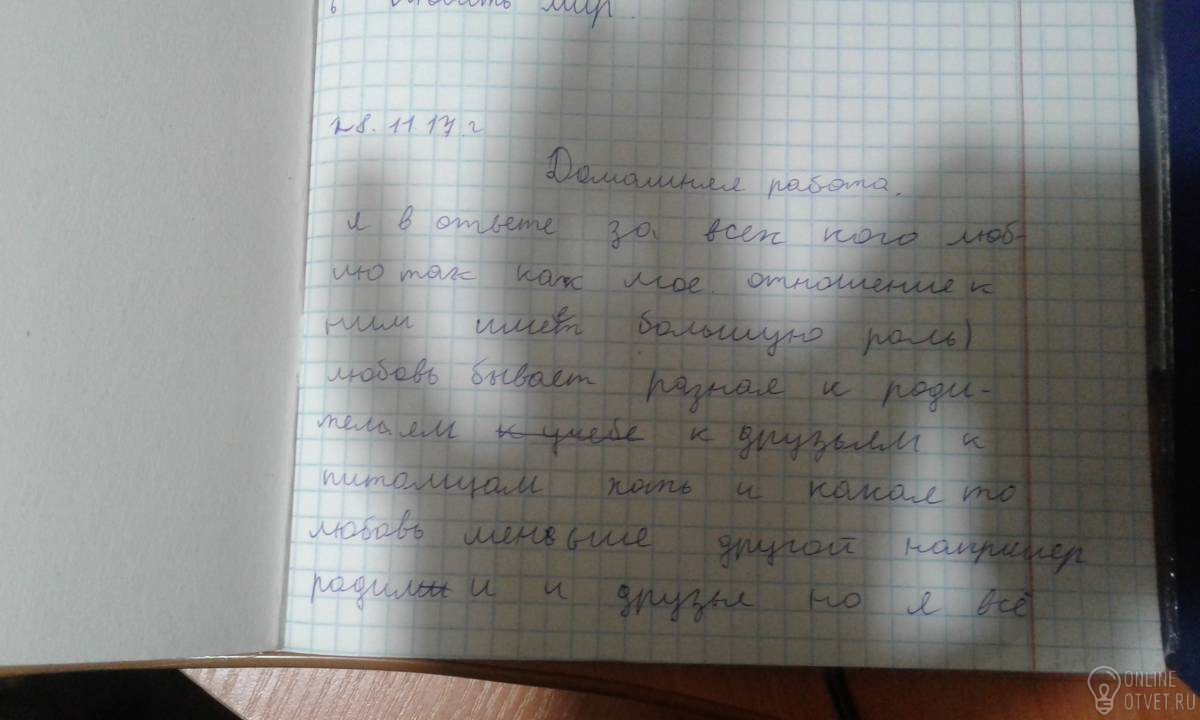 мир.
28.11.17.г
Домашняя работа.
я в ответе за всех кого люб-
лю так как мое отношение к
ним имеет большую роль)
любовь бывает разная к роди-
телям к учебе к друзьям к
питомцам хоть и какая то
любовь меньше другой например
родили и друзья но я всё
ONLINE
OTVET.RU